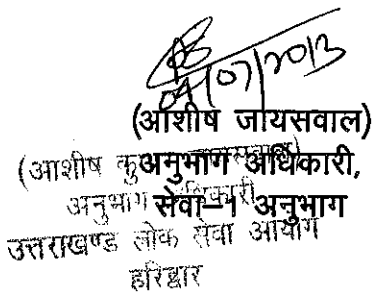 04/07/2013
(आशीष जायसवाल)
अनुभाग अधिकारी,
सेवा–1 अनुभाग
(आशीष कु
अनुभाग अधिकारी
उत्तराखण्ड लोक सेवा आयोग
हरिद्वार